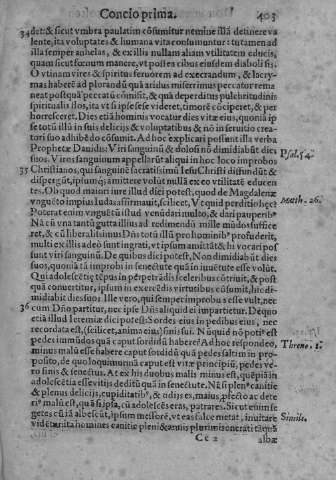 Concio prima. 403
34 det: & sicut vmbra paulatim cōsumitur nemine illā detinere va
lente, ita voluptates & humana vita consumuntur: tu tamen ad
illa semper anhelas, & ex illis nullam aliam vtilitatem educis,
quam sicut fœnum manere, vt postea cibus eiusdem diaboli sis.
O vtinam vires & spiritus feruorem ad execrandum, & lacry-
mas haberē ad plorandū quā aridus miserrimus peccator rema
neat postquā peccatū cōmisit, & quā deperditus pulchritudinis
spiritualis flos, ita vt si ipse sese videret, timorē cōciperet, & per
horresceret. Dies etiā hominis vocatur dies vitæ eius, quonia ip
se totū illū in suis delicijs & voluptatibus & nō in seruitio crea-
tori suo adhibēdo cōsumit. Ad hoc explicari possunt illa verba
Prophetæ Dauidis: Viri sanguinū & dolosi nō dimidiabūt dies
suos. Viros sanguinum appellat aliqui in hoc loco improbos Psal. 54.
35 Christianos, qui sanguinē sacratissimū Iesu Christi disfundūt &
dispergūt, ipsumq; amittere volūt nullā ex eo vtilitatē educen
tes. Ob quod maiori iure illud dici potest, quod de Magdalenæ
vnguēto impius Iudas affirmauit, scilicet, Vt quid perditio hæc? Matth. 26.
Poterat enim vnguētū illud venūdari multo, & dari pauperibᵒ
Nā cū vna tantū gutta illius ad redimendū mille mūdos suffice
ret, & cū liberalissimus Dn̄s totū illū pro hominibᵒ profuderit,
multi ex illis adeo sunt ingrati, vt ipsum amittāt & hi vocari pos
sunt viri sanguinū. De quibus dici potest, Non dimidiabūt dies
suos, quoniā tā improbi in senectute quā in iuuētute esse volūt.
Qui adolescētię tēpus in perpetrādis sceleribus cōtriuit, & post
quā conuertitur, ipsum in exercēdis virtutibus cōsumit, hic di-
midiabit dies suos. Ille vero, qui semper improbus esse vult, nec
36 cum Dn̄o partitur, nec ipse Dn̄s aliquid ei impartietur. Dequo
etiā illud Ieremiæ dici potest: Sordes eius in pedibus eius, nec
recordata est, (scilicet, anima eius) finis sui. Nūquid nō potiᵒ est
pedes immūdos quā caput sordidū habere? Ad hoc respondeo, Threno. 1.
minus malū esse habere caput sordidū quā pedes; saltim in pro-
posito, de quo loquimur, nā caput est vitæ principiū, pedes ve-
ro finis & senectus. At ex his duobus malis minus est, quēpiā in
adolescētia esse vitijs deditū quā in senectute. Nā si plenᵒ canitie
& plenus delicijs, cupiditatibᵒ, & odijs es, maius, profecto ac dete
riᵒ malū est, quā si ipsa, cū adolescēs eras, patrares. Sicut enim se
getes cū iā albescūt, ipsum messorē, vt eas falce metat, inuitare Simile.
vidētur, ita homines canitie pleni & annis plurimis onerati tāquā
Cc 2 albæ